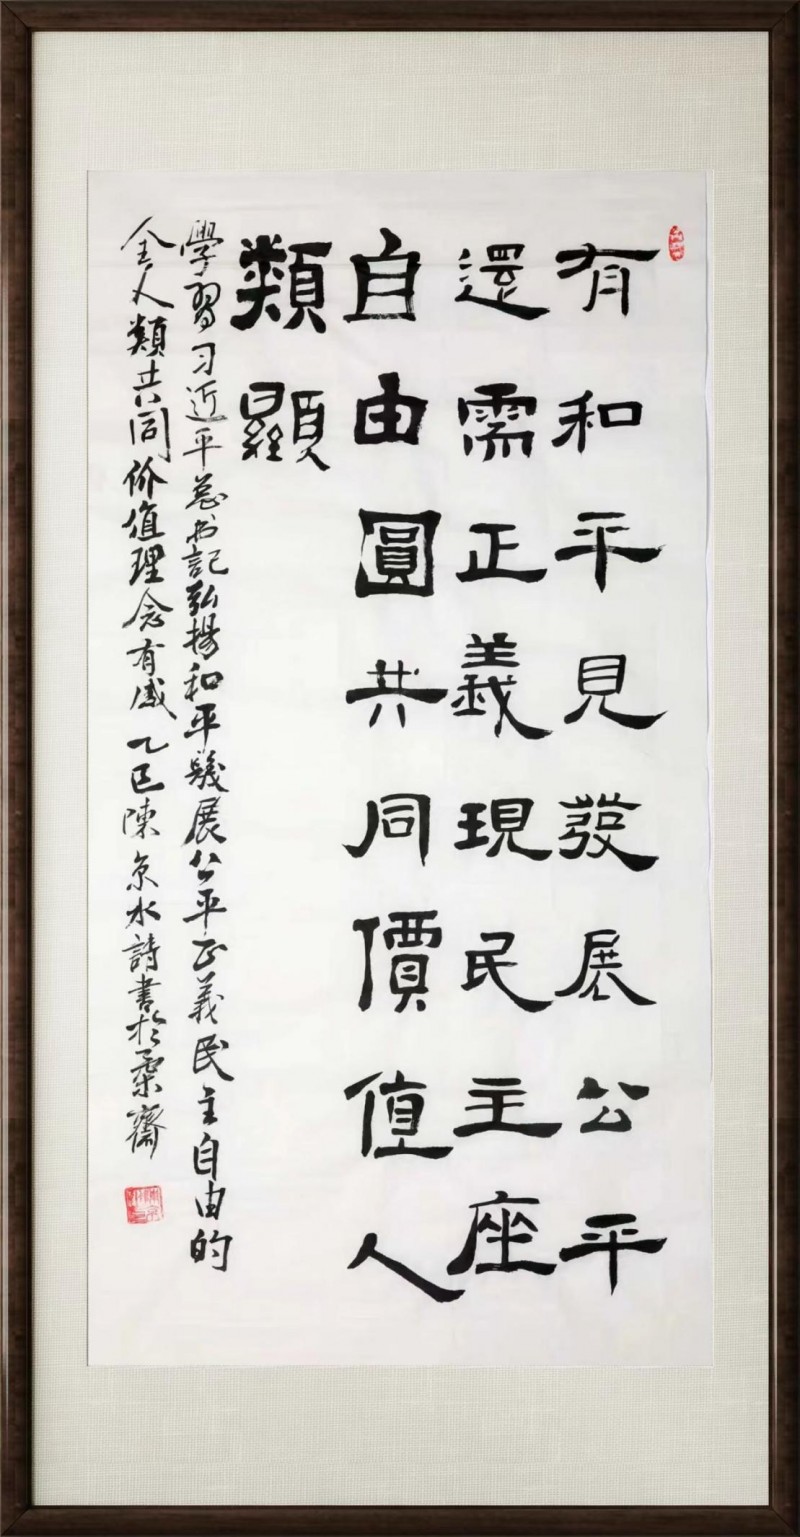 有和平見發展公平
還需正義現民主座
自由圓共同價值人
類顯
學習习近平总书記弘揚和平發展公平正義民主自由的
全人類共同价值理念有感乙巳陳京水詩書於柔齋